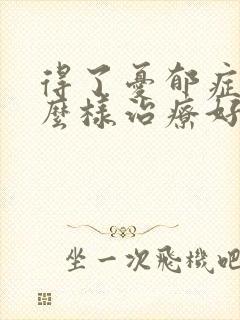 得了憂郁症
麽様治療好
坐一次飛機吧